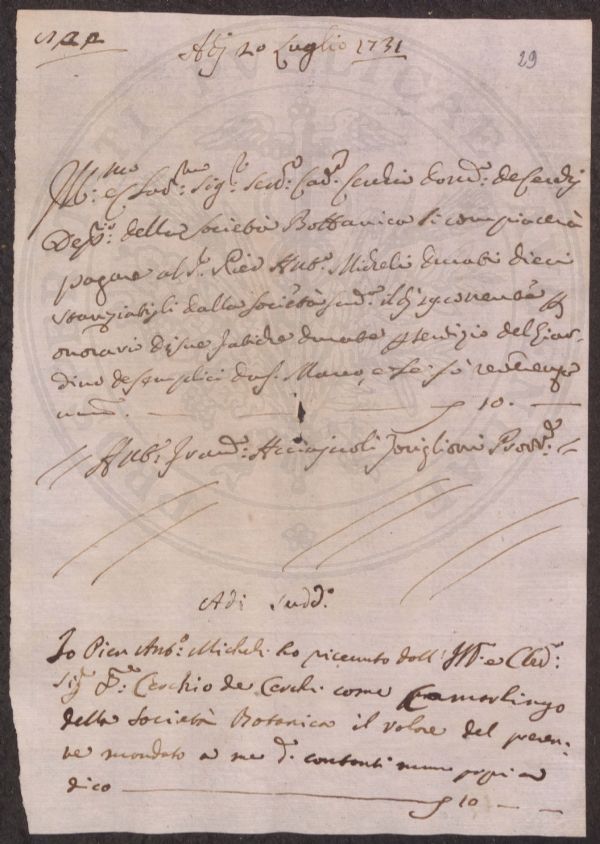 Adj 20 Luglio 1731
29
Ill:mo e Clar:mo Sig:r Cerchio de Cerchj
Dep:o della Società Bottanica si compiacerà
pagare al S.r Pier Ant:o Micheli ducati dieci
stanziatigli dalla Società sud:a il dì 19 corrente p
onorario di sue fatiche durate p servizio del Giar-
dino de semplici di S. Marco, e
10. —
Ant:o Fran:o Acciajuoli Provv:e
Adi sudd:o
Io Pier Ant:o Micheli ho ricevuto dall' Ill: e Cla:
Sig:r Cerchio de Cerchi come Camarlingo
della Società Botanica il valore del presen-
te mandato a me d: contanti
dico — 10 —